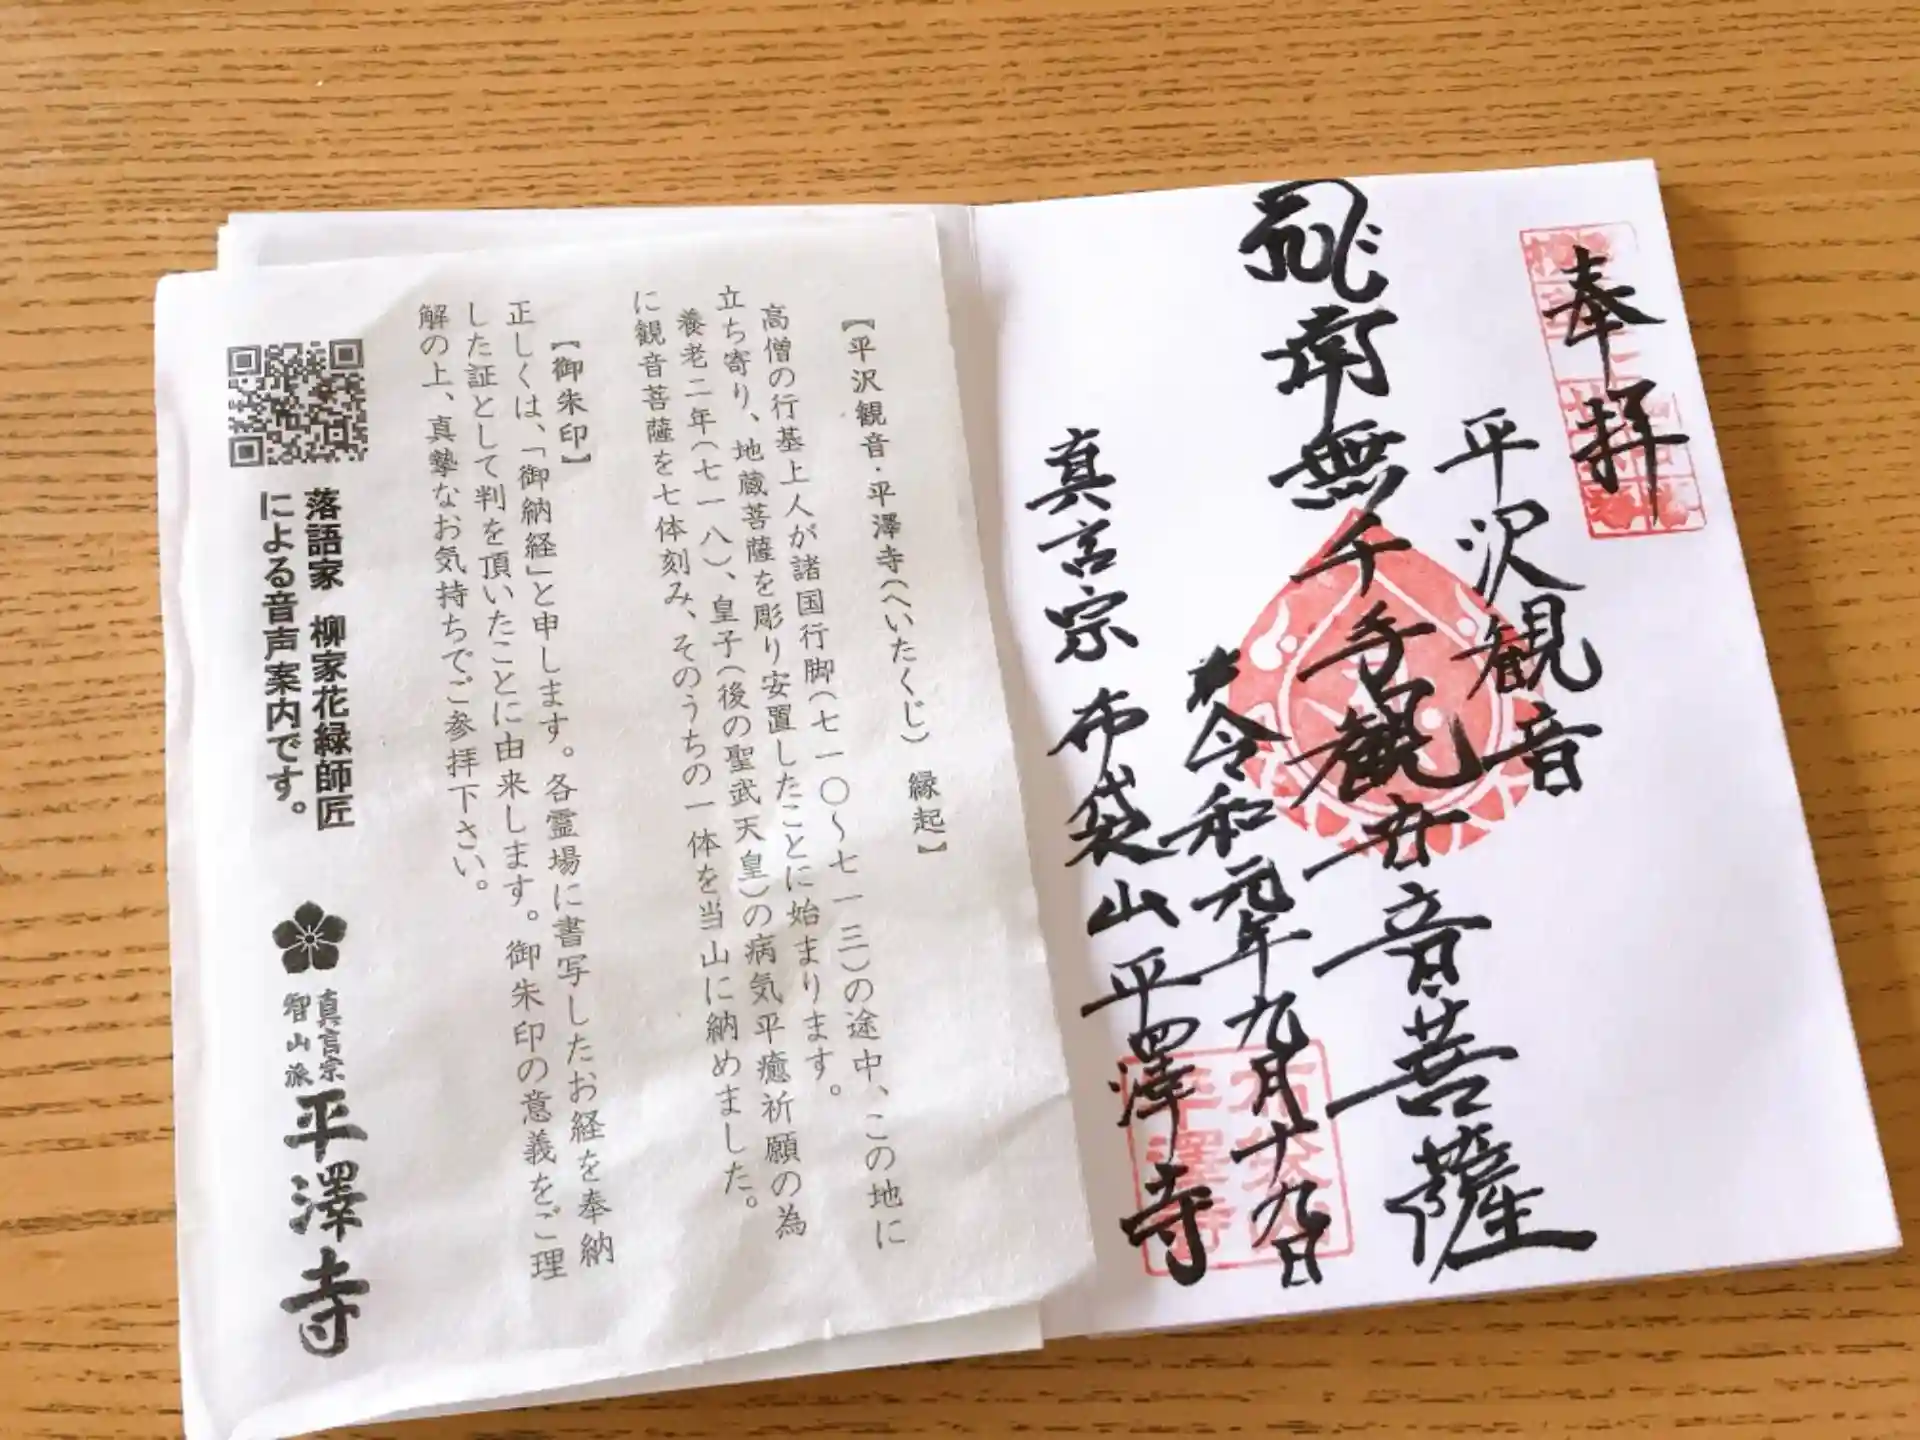 奉拝
平沢観音
南無千手観音菩薩
令和元年九月十九日
真言宗 布袋山平澤寺
【平沢観音・平澤寺(へいたくじ) 縁起】
高僧の行基上人が諸国行脚(七一〇〜七一三)の途中、この地に
立ち寄り、地蔵菩薩を彫り安置したことに始まります。
養老二年(七一八)、皇子(後の聖武天皇)の病気平癒祈願の為
に観音菩薩を七体刻み、そのうちの一体を当山に納めました。
【御朱印】
正しくは、「御納経」と申します。各霊場に書写したお経を奉納
した証として判を頂いたことに由来します。御朱印の意義をご理
解の上、真摯なお気持ちでご参拝下さい。
落語家 柳家花緑師匠
による音声案内です。
真言宗
智山派
平澤寺